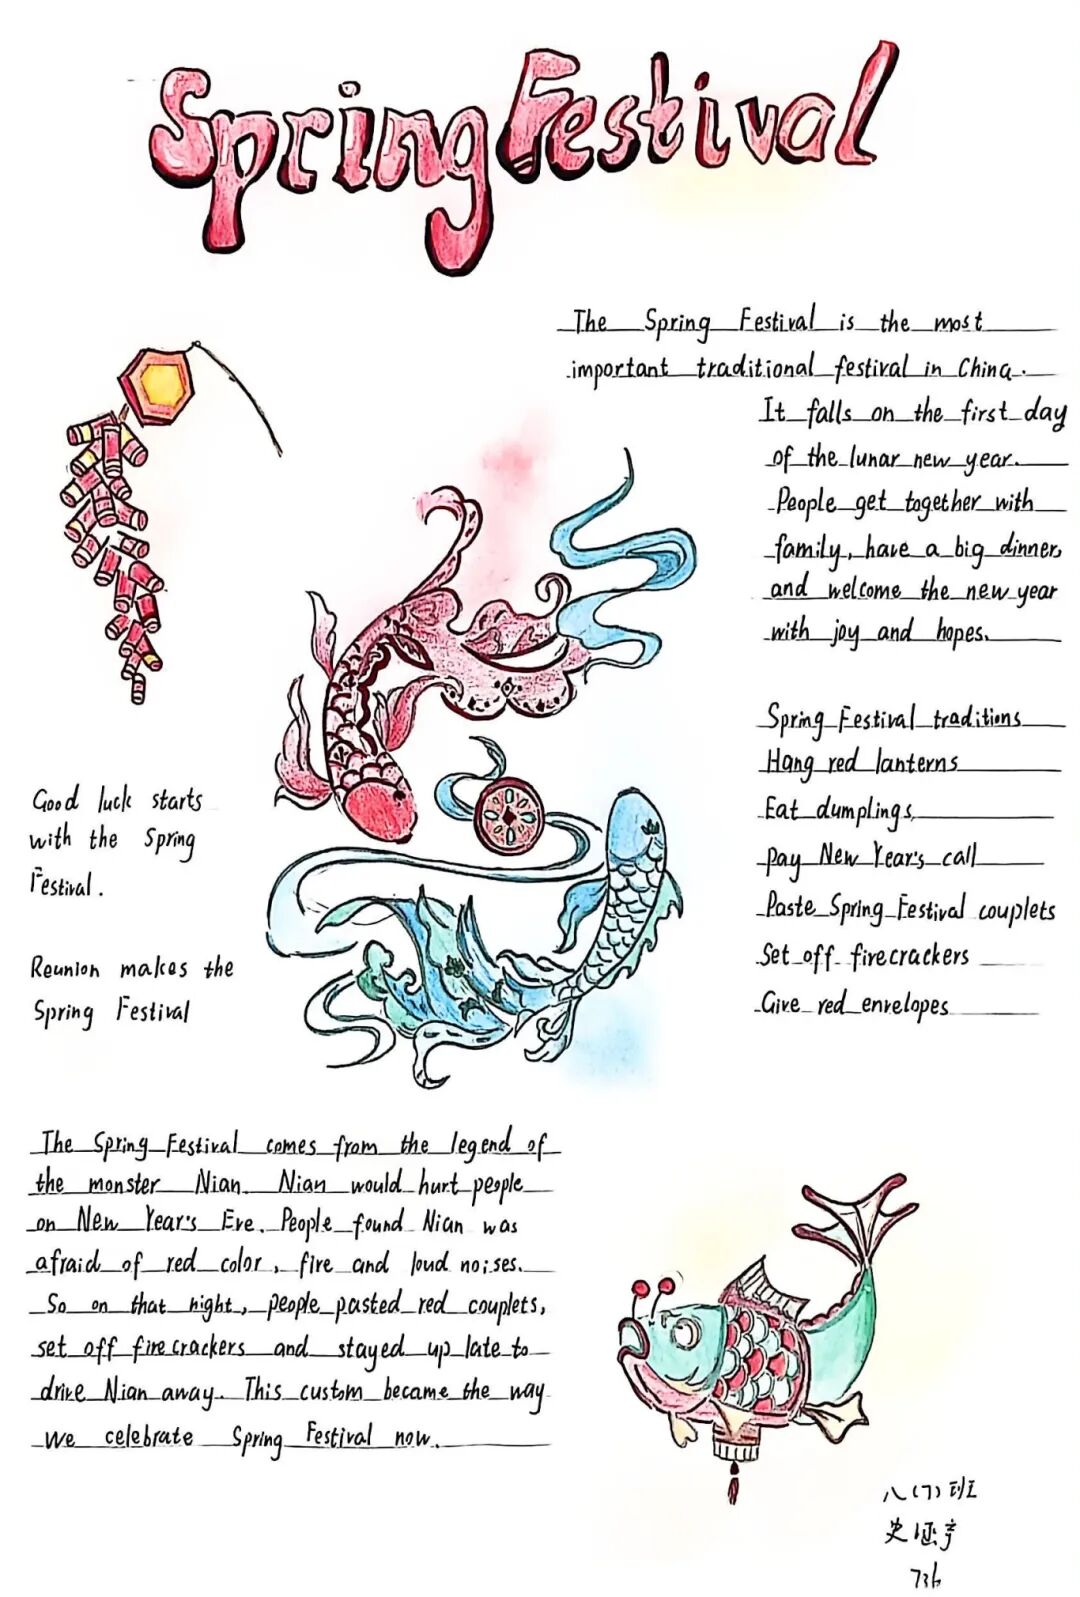 Spring Festival
The Spring Festival is the most
important traditional festival in China.
It falls on the first day
of the lunar new year.
People get together with
family, have a big dinner,
and welcome the new year
with joy and hopes.
Spring Festival traditions
Hang red lanterns
Eat dumplings,
pay New Year's call
Paste Spring Festival couplets
Set off firecrackers
Give red envelopes
Good luck starts
with the Spring
Festival.
Reunion makes the
Spring Festival
The Spring Festival comes from the legend of
the monster Nian. Nian would hurt people
on New Year's Eve. People found Nian was
afraid of red color, fire and loud noises.
So on that night, people pasted red couplets,
set off firecrackers and stayed up late to
drive Nian away. This custom became the way
we celebrate Spring Festival now.
八(7)班
史
736